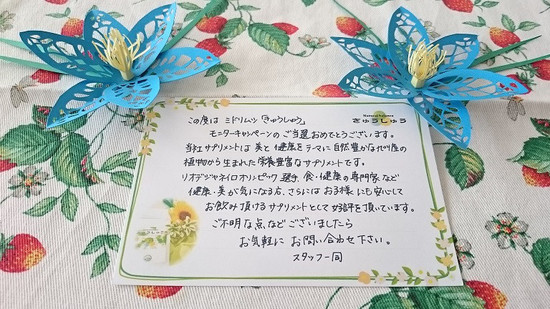 きゅうしゅう
この度は ミドリムシ「きゅうしゅう」
モニターキャンペーンの ご当選 おめでとうございます。
当社サプリメントは 美と健康をテーマに 自然豊かな九州産の
植物から生まれた 栄養豊富なサプリメントです。
リオデジャネイロオリンピック選手、食・健康の専門家など
健康・美が気になる方、さらには お子様にも安心して
お飲み頂けるサプリメントとして 好評を頂いています。
ご不明な点など ございましたら
お気軽に お問い合わせ下さい。
スタッフ一同